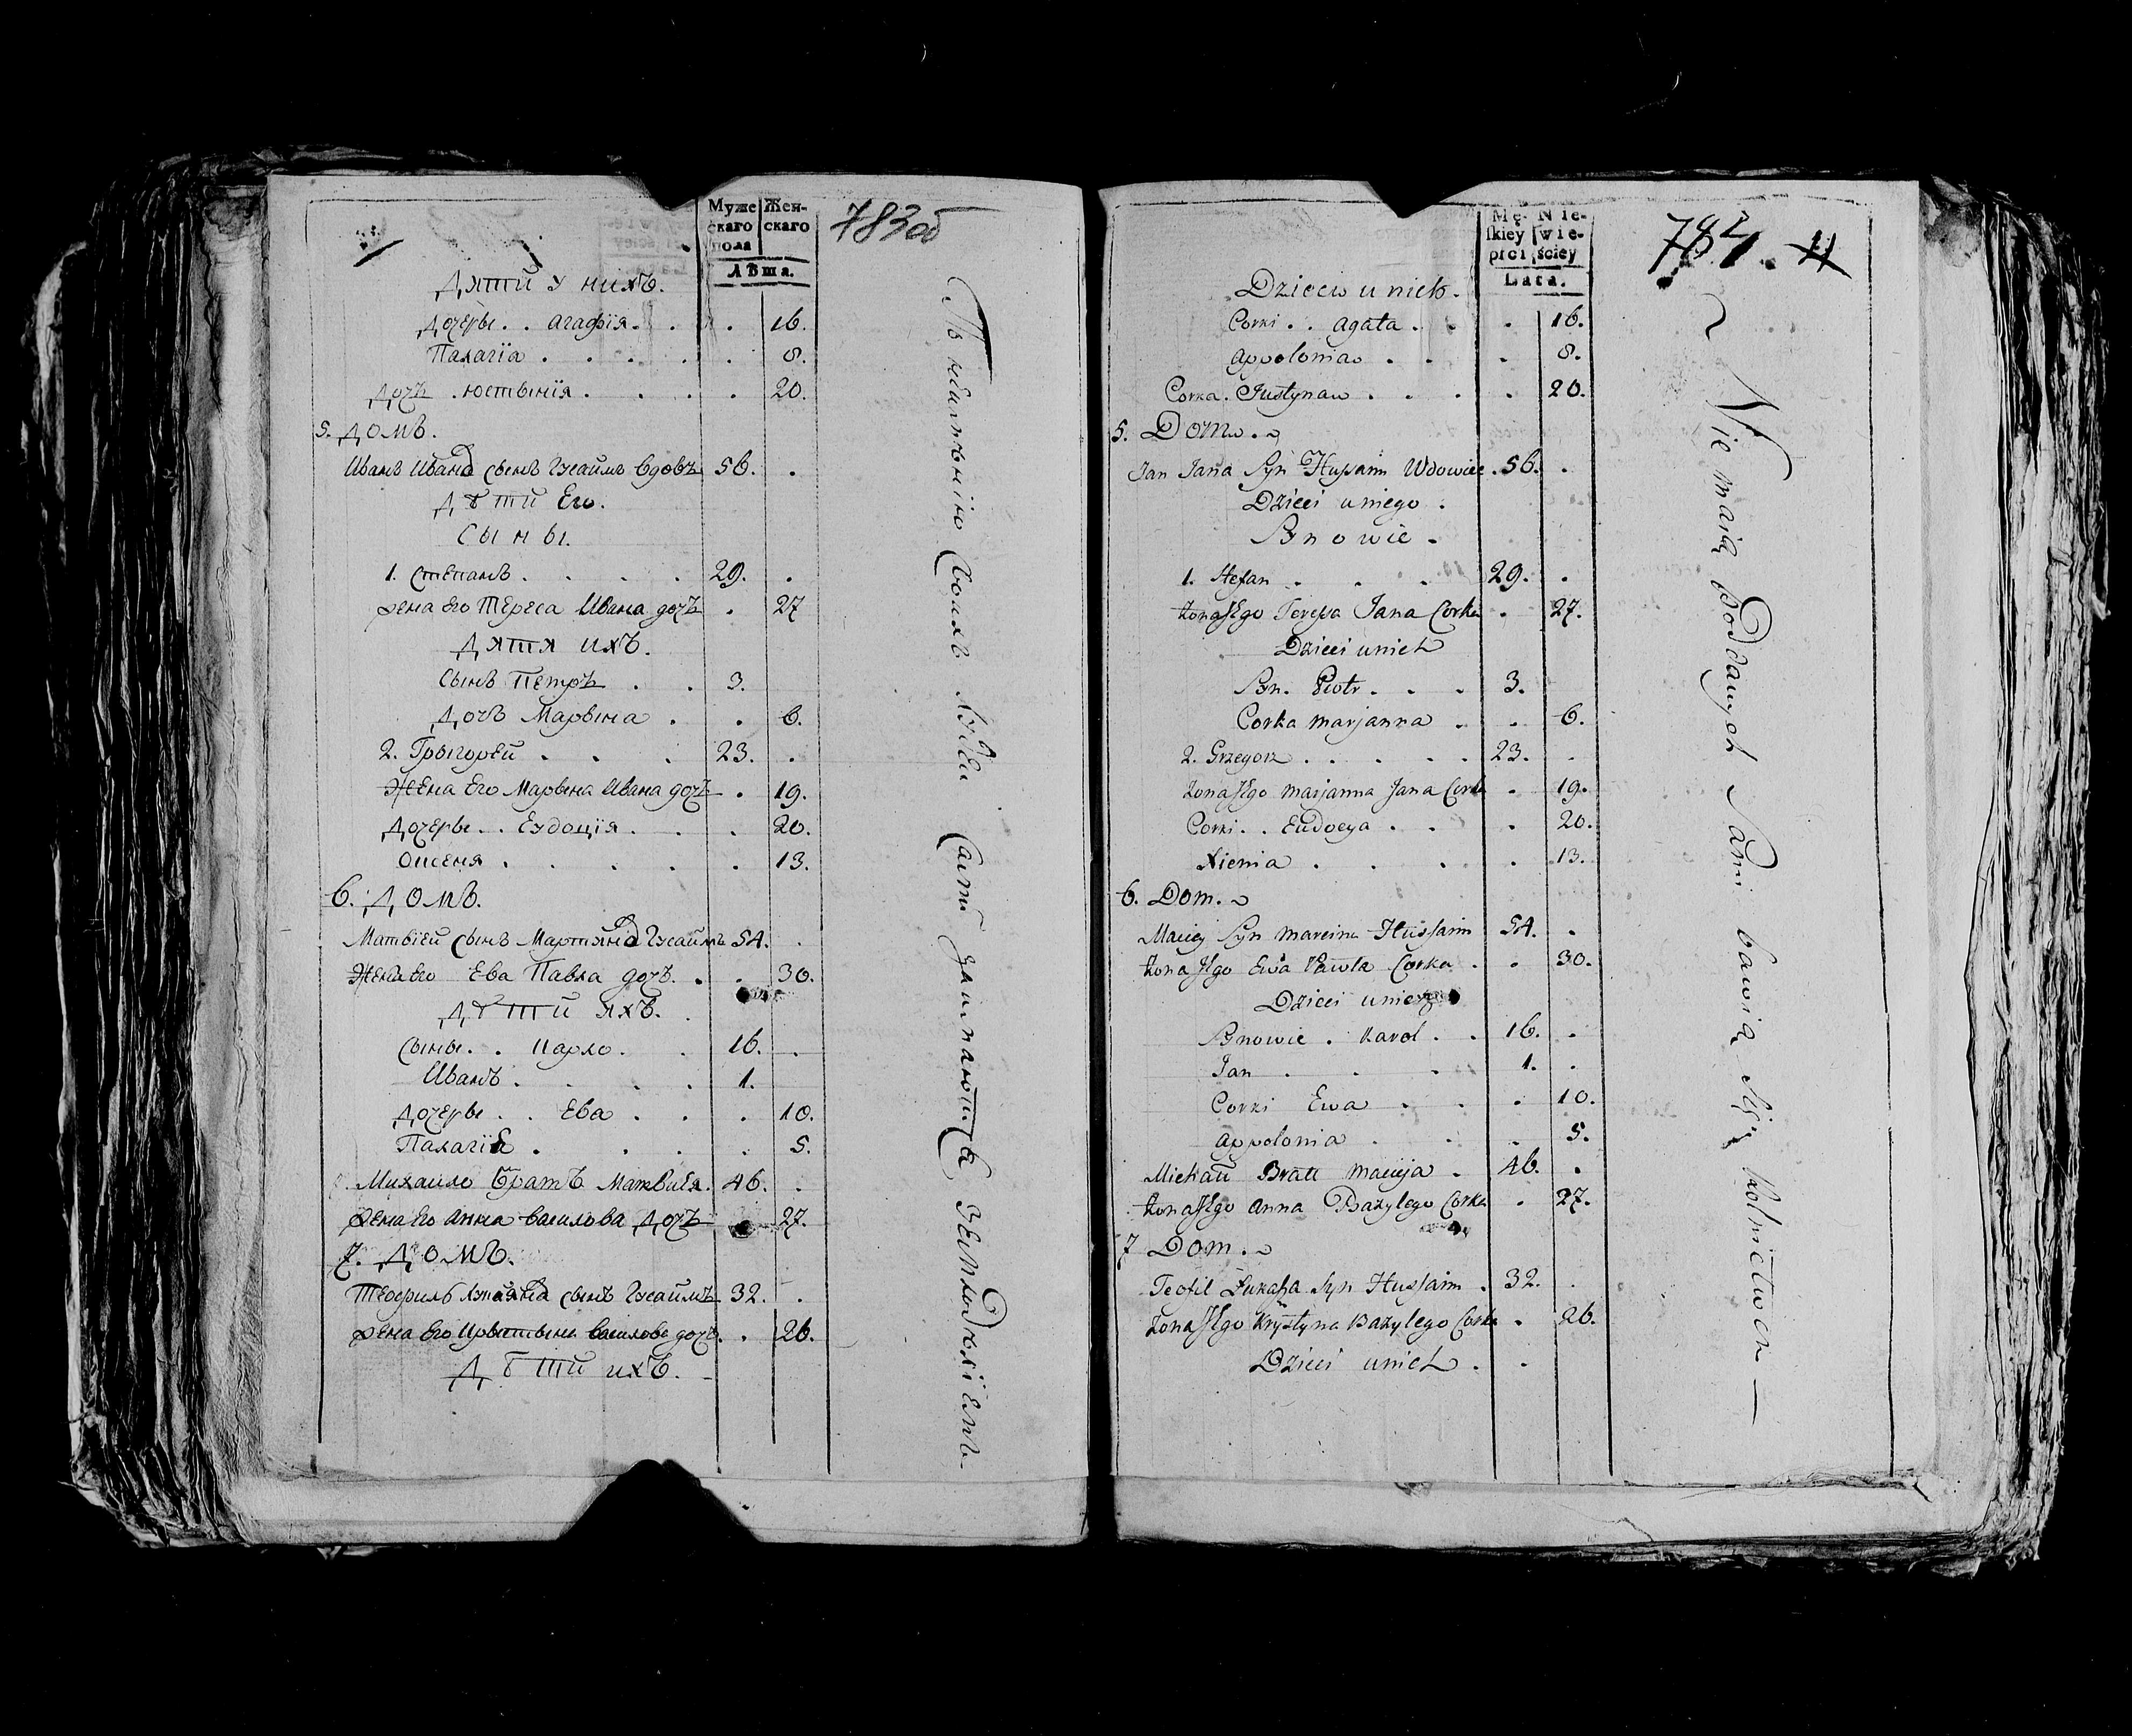 Муже Жен-
скаго скаго
пола
Лѣта.
783об
Дяти у нихъ.
Дочеры . . Агафїя . . . 16.
Палагїа . . . . . 8.
Дочъ . Юстынїя . . . . 20.
5. Домъ.
Иванъ Ивана сынъ Гусаимъ вдовъ 56. .
Дѣти Его.
Сыны.
1. Степанъ . . . . 29. .
жена Его Тереса Ивана дочъ . 27
Дятя ихъ.
Сынъ Петръ . . 3.
Дочъ Марьяна . . 6.
2. Грыгорей . . . 23. .
Жена Его Марьяна Ивана дочъ . 19.
Дочеры . . Еудоцїя . . . 20.
Оксеня . . . . . 13.
6. Домъ.
Матвїей сынъ Мартяна Гусаимъ 54. .
Жена Его Ева Павла дочъ . . 30.
Дѣти яхъ.
Сыны . . Карло . . 16. .
Иванъ . . . . 1.
Дочеры . . Ева . . . 10.
Палагїя . . . . 5.
Михаило Братъ Матвиея . 46. .
жена Его Анна Василова Дочъ 27.
7. Домъ.
Теофиль Лукаша сынъ Гусаимъ 32. .
жена Его Крыстына Василова дочъ . . 26.
Дѣти ихъ.
Сами займаются Земледѣлїемъ.
Mę- Nie-
skiey wie-
płci ściey
Lata.
784.
Dzieciu nich.
Corki . . Agata . . . 16.
Appolonia . . . 8.
Corka . Justyna . . . . 20.
5. Dom.
Jan Jana Syn Hussaim Wdowiec . 56. .
Dzieci uniego .
Synowie .
1. Stefan . . . 29. .
Zona Jego Teressa Jana Corka . 27.
Dzieci unich
Syn . Piotr . . . 3.
Corka Marjanna . . 6.
2. Grzegorz . . . . . 23. .
Zona Jego Marjanna Jana Corka . 19.
Corki . . Eudocya . . . 20.
Xienia . . . . 13.
6. Dom.
Maciey Syn Marcina Hussaim 54. .
Zona Jego Ewa Pawła Corka . . 30.
Dzieci unich
Synowie . Karol . . 16. .
Jan . . . 1. .
Corki Ewa . . . 10.
Appolonia . . . 5.
Michał Bratt Macieja . 46. .
Zona Jego Anna Bazylego Corka . 27.
7 Dom.
Teofil Łukasza Syn Hussaim . 32. .
Zona Jego Krystyna Bazylego Corka . 26.
Dzieci unich . .
Nie maią Poddanych Sami bawią się Rolnictwem —